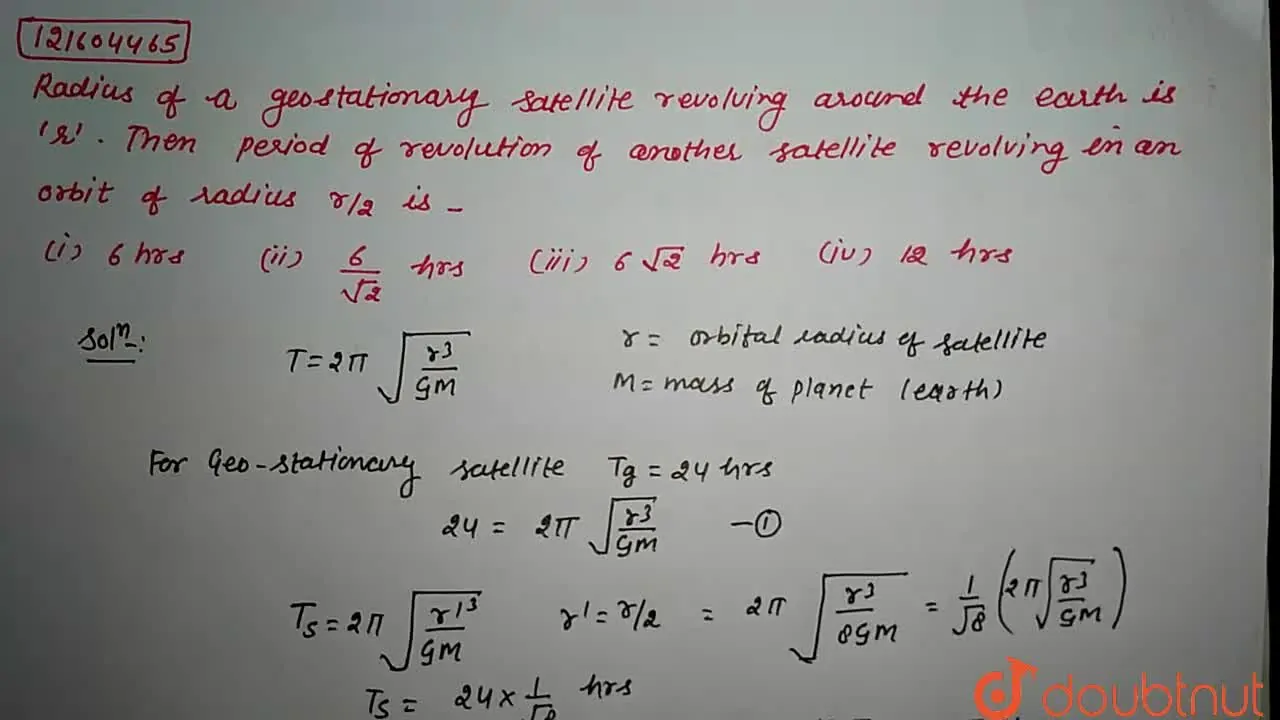 121604465
Radius of a geostationary satellite revolving around the earth is
'r'. Then period of revolution of another satellite revolving in an
orbit of radius r/2 is -
(i) 6 hrs (ii) 6/√2 hrs (iii) 6√2 hrs (iv) 12 hrs
Solⁿ:
T = 2π √(r³/GM) r = orbital radius of satellite
M = mass of planet (earth)
For Geo-stationary satellite Tg = 24 hrs
24 = 2π √(r³/GM) - ①
Ts = 2π √(r'³/GM) r' = r/2 = 2π √(r³/8GM) = 1/√8 (2π √(r³/GM))
Ts = 24 × 1/√8 hrs
doubtnut